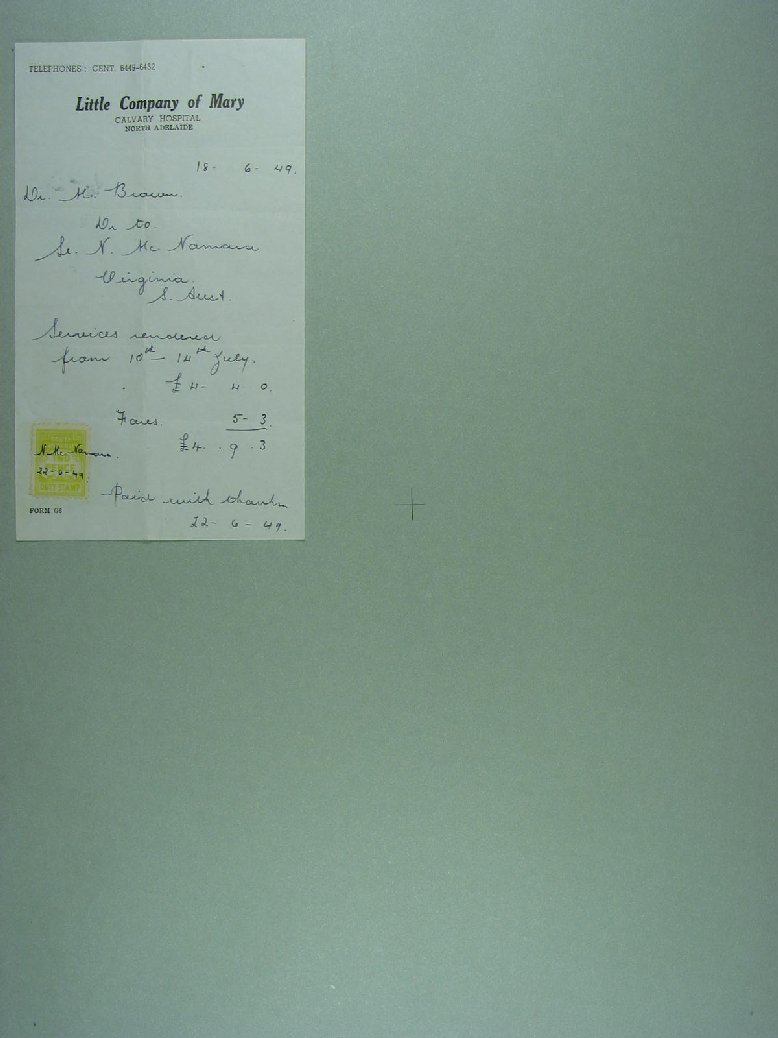 TELEPHONES: CENT. 6449-6432
Little Company of Mary
CALVARY HOSPITAL
NORTH ADELAIDE
18 - 6 - 49.
Dr. M. Brown.
Dr to.
Sr. N. Mc Namara
Virginia.
S. Aust.
Services rendered
from 10th - 14th July.
£4 - 4 - 0.
Fares. 5 - 3.
£4 . 9 . 3
N. Mc Namara.
22-6-49.
DUTY STAMP
Paid with thanks
22 - 6 - 49.
FORM 68